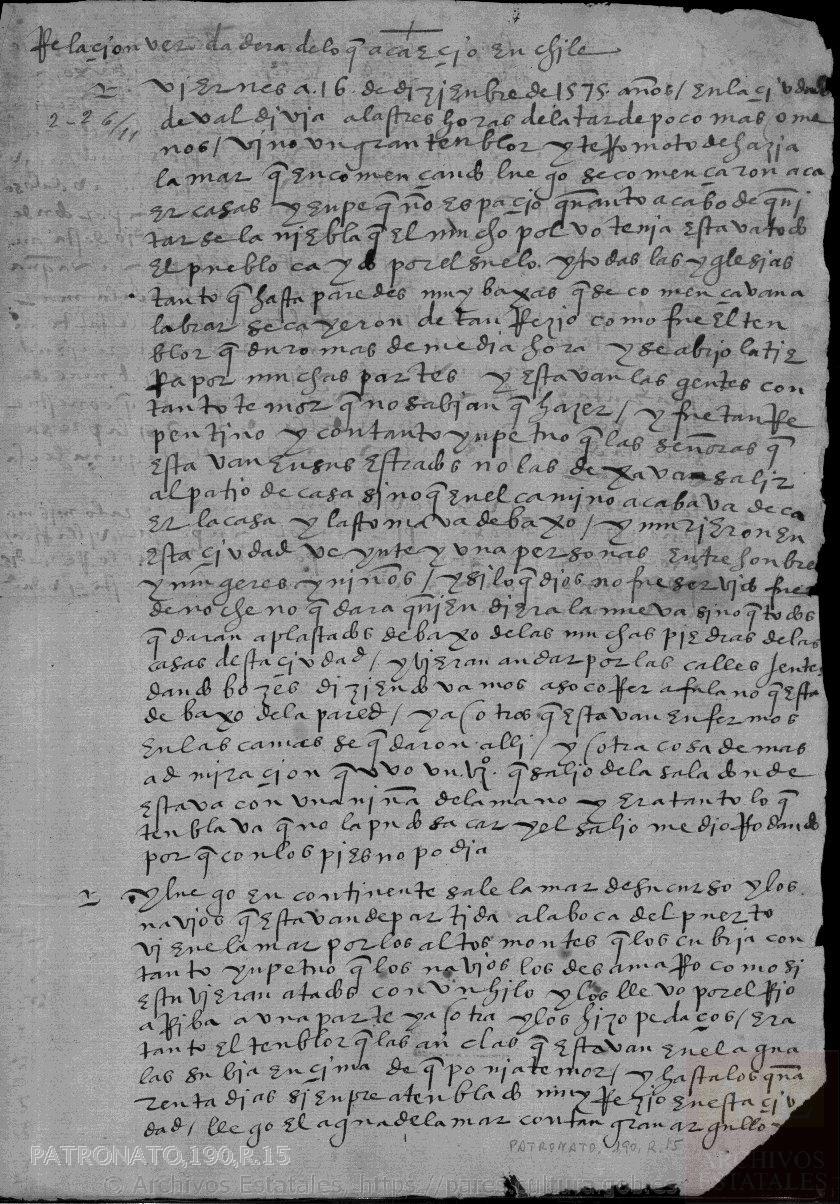 Relaçion verdadera de lo q̃ acaeçio en chile
viernes a .16. de dizienbre de 1575. años / en la çiudad
2-2 6/11
de valdivia a las tres horas de la tarde poco mas o me
nos / vino un gran tenblor y terromoto de hazia
la mar q̃ en començando luego se començaron a ca
er casas y en peq̃ño espaçio quanto acabo de qui
tarse la niebla q̃ el mucho polvo tenia estava todo
el pueblo caydo por el suelo. y todas las yglesias
tanto q̃ hasta paredes muy baxas q̃ se començavan a
labrar se cayeron de tan rrezio como fue el ten
blor q̃ duro mas de media hora y se abrio la tie
rra por muchas partes y estavan las gentes con
tanto temor q̃ no sabian q̃ hazer / y fue tan rre
pentino y con tanto ynpetuo q̃ las señoras q̃
estavan en sus estrados no las dexava salir
al patio de casa sino q̃ en el camino acabava de ca
er la casa y las tomava debaxo / y murieron en
esta çiudad veynte y una personas entre honbres
y mugeres y niños / y si lo q̃ dios no fue servido fuera
de noche no q̃dara quien diera la nueva sino q̃ todos
q̃daran aplastados debaxo de las muchas piedras de las
casas desta çiudad / y vieran andar por las calles jente
dando bozes diziendo vamos a socorrer a fulano q̃ esta
debaxo de la pared / y a otros q̃ estavan enfermos
en las camas se q̃daron alli / y otra cosa de mas
admiraçion q̃ uvo un vº. q̃ salio de la sala donde
estava con una niña de la mano y era tanto lo q̃
tenblava q̃ no la pudo sacar y el salio medio rrodando
por q̃ con los pies no podia
y luego en continente sale la mar de su curso y los
navios q̃ estavan de partida a la boca del puerto
viene la mar por los altos montes q̃ los cubria con
tanto ynpetuo q̃ los navios los desamarro como si
estuvieran atados con un hilo y los llevo por el rrio
arriba a una parte y a otra y los hizo pedaços / era
tanto el tenblor q̃ las anclas q̃ estavan en el agua
las subia ençima de q̃ ponia temor / y hasta los qua
renta dias sienpre a tenblado muy rrezio en esta çiu
dad / llego el agua de la mar con tan gran argullo
PATRONATO, 190, R.15
PATRONATO,190,R.15
© Archivos Estatales, https://pares.cultura.gob.es
ARCHIVOS
ESTATALES